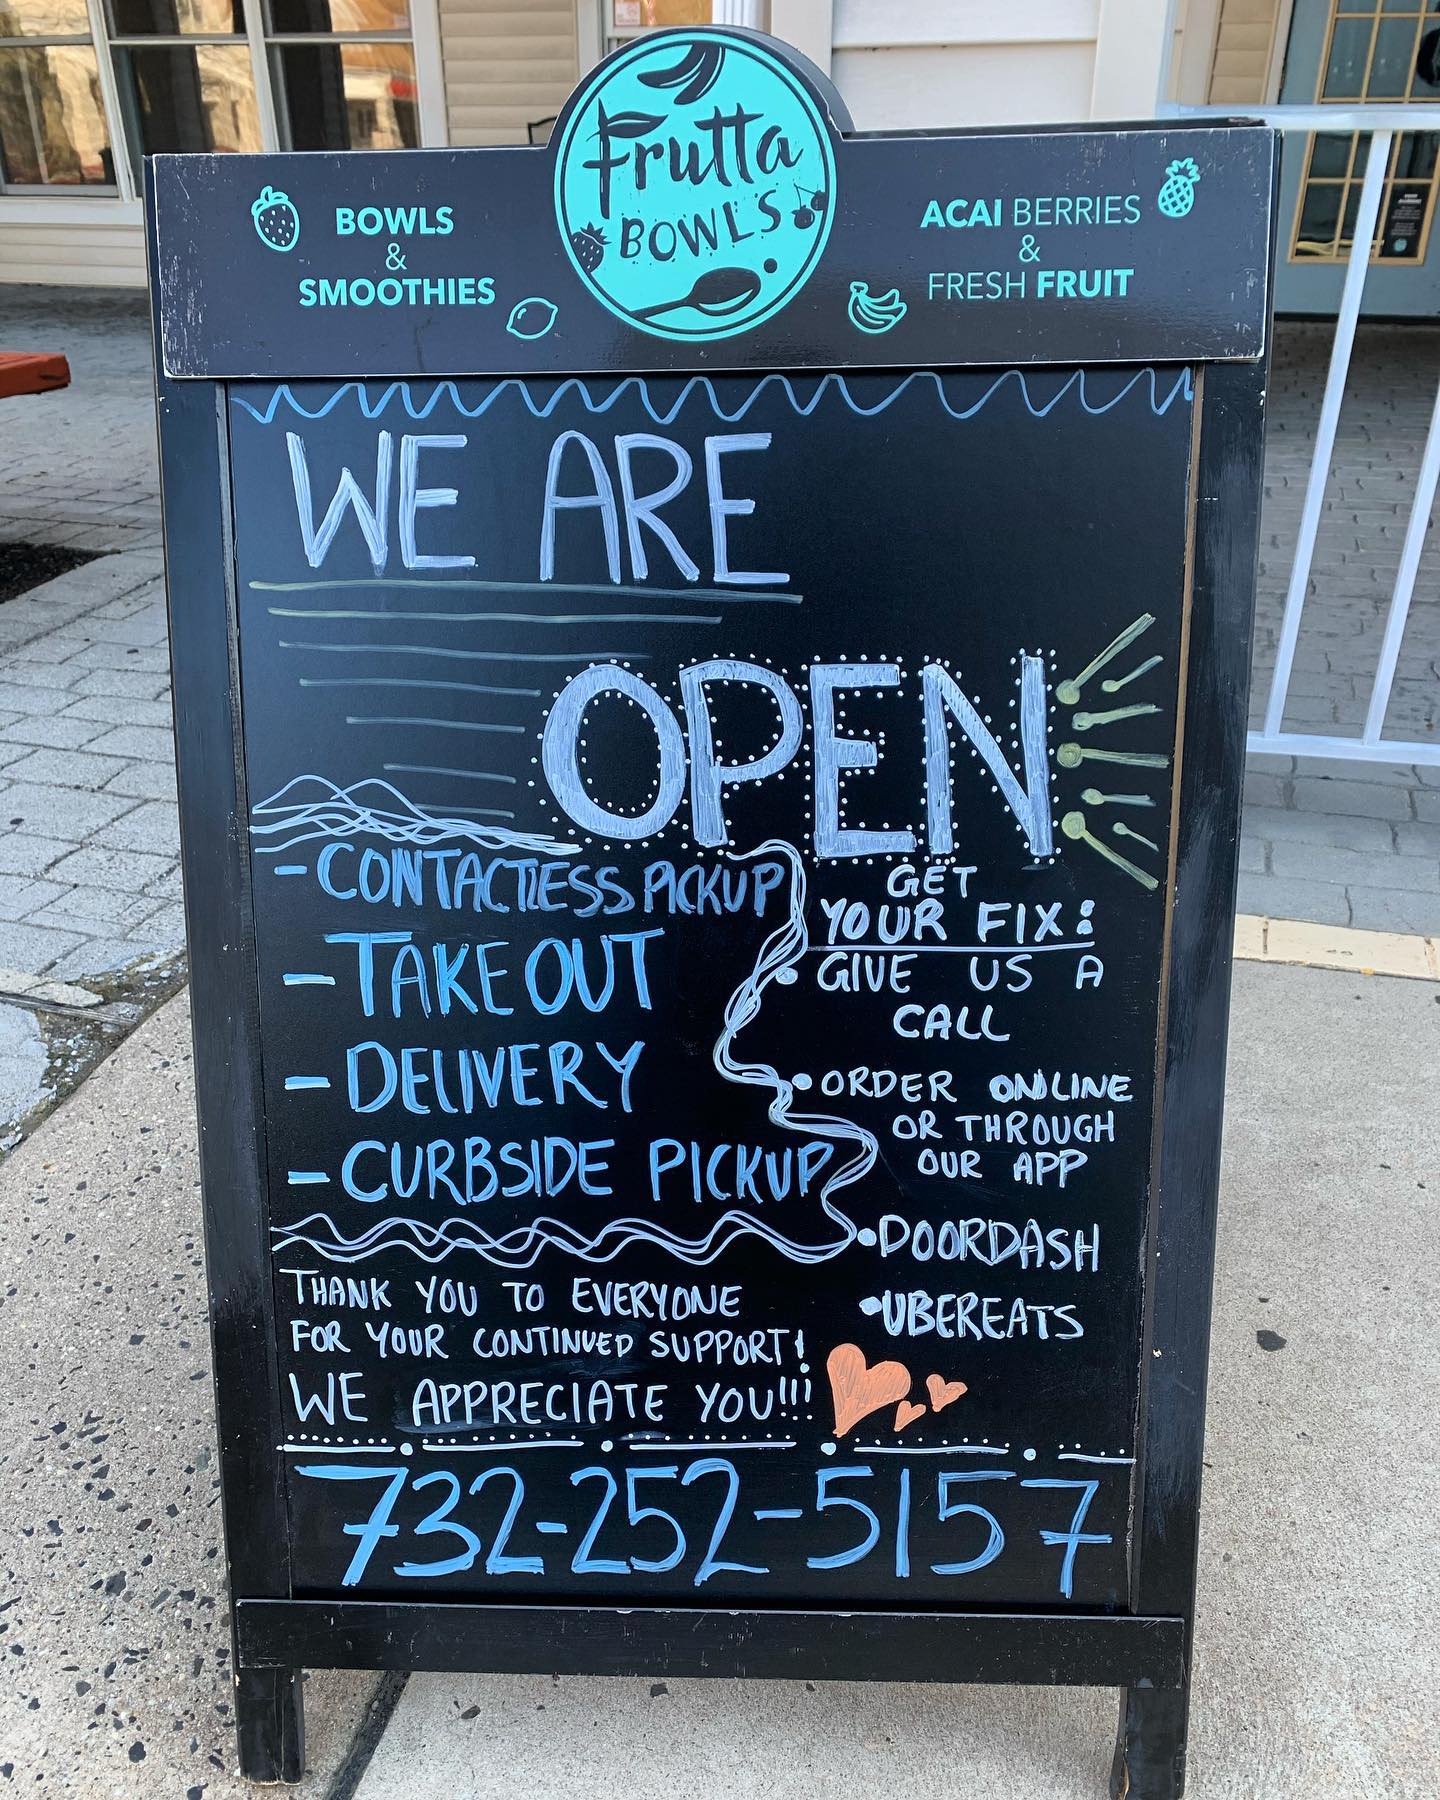 Frutta
BOWLS
BOWLS
&
SMOOTHIES
ACAI BERRIES
&
FRESH FRUIT
WE ARE
OPEN
- CONTACTLESS PICKUP
- TAKE OUT
- DELIVERY
- CURBSIDE PICKUP
GET
YOUR FIX:
• GIVE US A
CALL
• ORDER ONLINE
OR THROUGH
OUR APP
• DOORDASH
• UBEREATS
THANK YOU TO EVERYONE
FOR YOUR CONTINUED SUPPORT!
WE APPRECIATE YOU!!!
732-252-5157